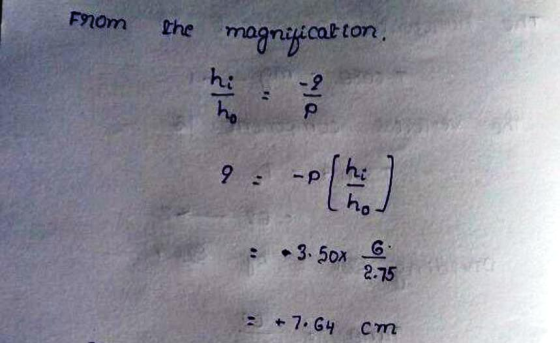 From the magnification.
hi/ho = -q/p
q = -p[hi/ho]
= - 3.50x 6/2.75
= +7.64 cm